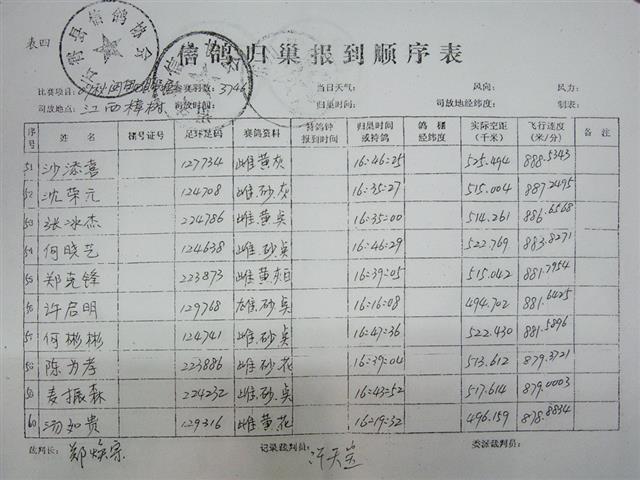 表四
信鸽归巢报到顺序表
县信鸽协会
比赛项目: 参赛羽数: 3746 当日天气: 风向: 风力:
司放地点: 江西樟树 司放时间: 归巢时间: 司放地经纬度: 制表:
序号 姓名 棚号证号 足环足码 赛鸽资料 特鸽钟报到时间 归巢时间或持鸽 鸽棚经纬度 实际空距(千米) 飞行速度(米/分) 备注
51 沙添喜 127734 雌.黄.灰 16:46:25 525.494 888.5343
52 沈荣元 124708 雌.砂.灰 16:35:27 515.004 887.2495
53 张冰杰 224786 雌.黄.吴 16:35:00 514.261 886.6568
54 何晓艺 124638 雌.砂.吴 16:46:29 522.769 883.8271
55 郑克锋 223873 雌.黄.灰白 16:39:05 515.042 881.7954
56 许启明 129768 雄.砂.吴 16:16:08 494.702 881.6425
57 何彬彬 124741 雌.砂.灰 16:47:36 522.430 881.5896
58 陈为孝 223886 雌.砂.花 16:39:04 513.612 879.3721
59 麦振森 224232 雌.砂.吴 16:43:52 517.614 879.0003
60 汤如贵 129316 雌.黄.花 16:19:32 496.159 878.8834
裁判长: 郑焕宗 记录裁判员: 委派裁判员: